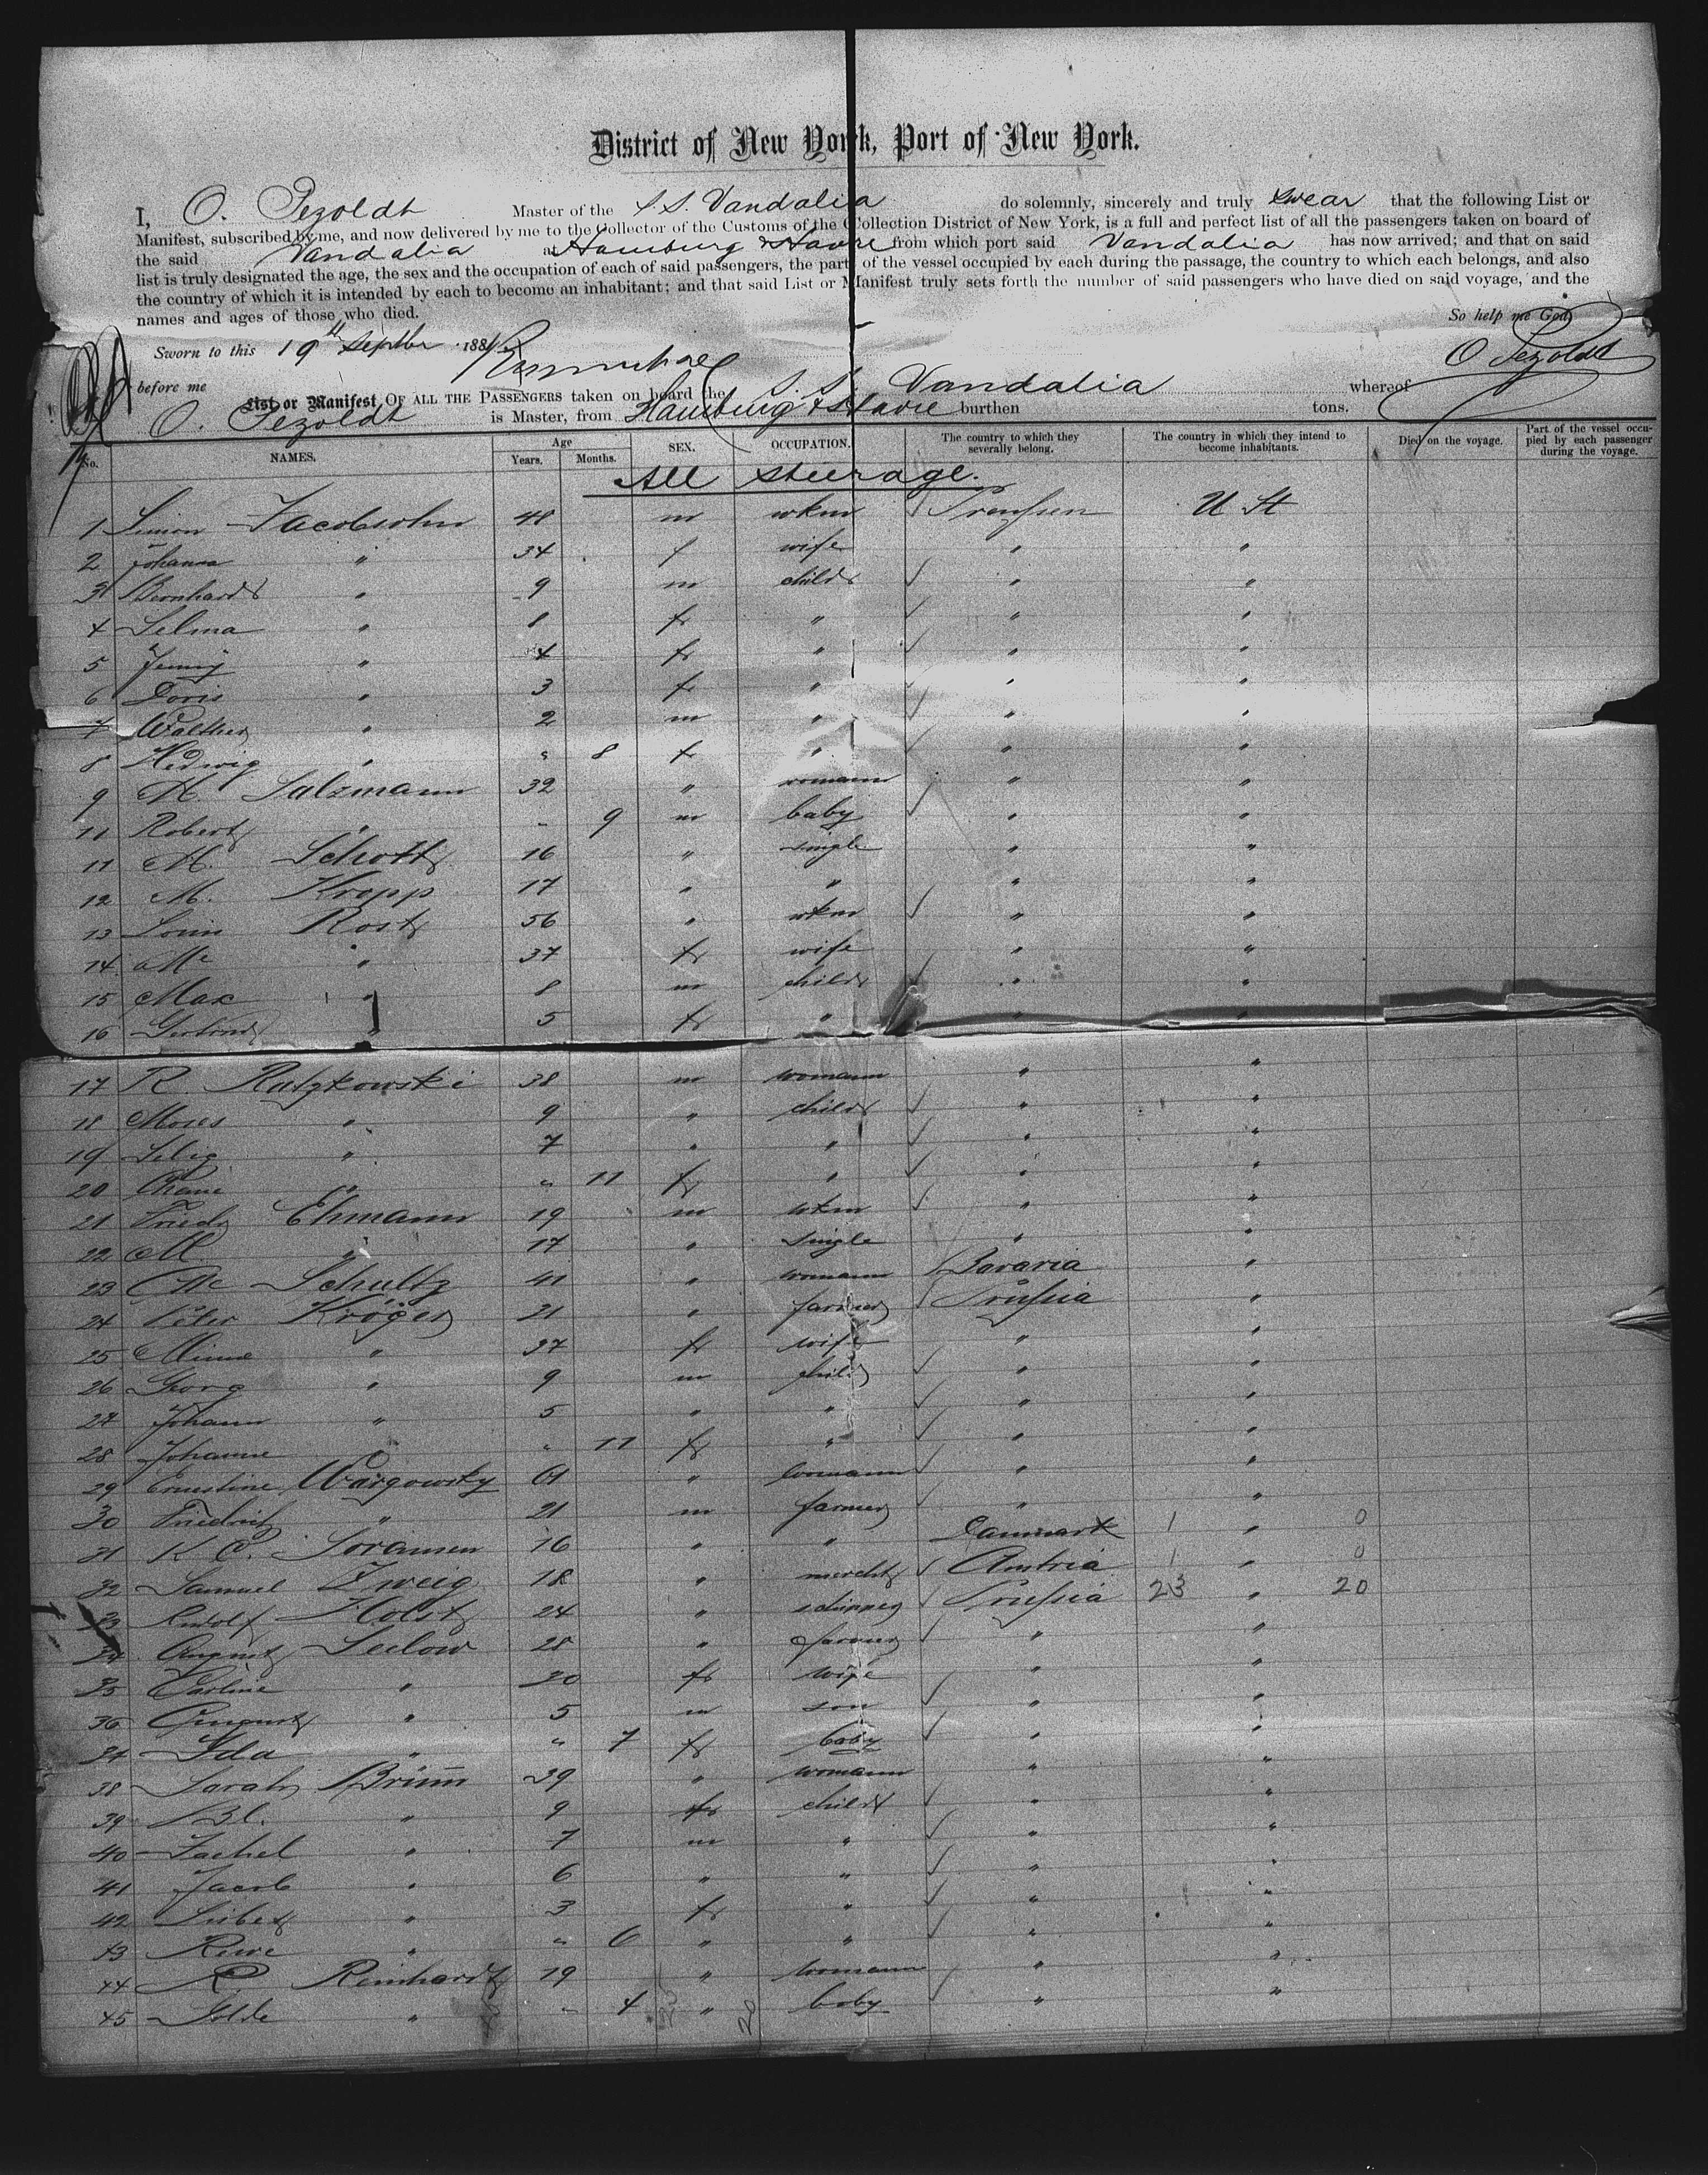 District of New York, Port of New York.
I, O. Pezoldt Master of the S.S. Vandalia do solemnly, sincerely and truly swear that the following List or
Manifest, subscribed by me, and now delivered by me to the Collector of the Customs of the Collection District of New York, is a full and perfect list of all the passengers taken on board of
the said Vandalia at Hamburg & Havre from which port said Vandalia has now arrived; and that on said
list is truly designated the age, the sex and the occupation of each of said passengers, the part of the vessel occupied by each during the passage, the country to which each belongs, and also
the country of which it is intended by each to become an inhabitant; and that said List or Manifest truly sets forth the number of said passengers who have died on said voyage, and the
names and ages of those who died.
So help me God,
Sworn to this 19th Septber 188
O Pezoldt
before me
List or Manifest OF ALL THE PASSENGERS taken on board the S. S. Vandalia whereof
O. Pezoldt is Master, from Hamburg & Havre burthen tons.
No. NAMES. Age Years. Months. SEX. OCCUPATION. The country to which they severally belong. The country in which they intend to become inhabitants. Died on the voyage. Part of the vessel occupied by each passenger during the voyage.
All steerage.
1 Simon Jacobsohn 48 m wkm Preussen U St
2 Johanna " 34 f wife " "
3 Bernhardt " 9 m child " "
4 Selma " 8 f " " "
5 Jenny " 4 f " " "
6 Doris " 3 f " " "
7 Walther " 2 m " " "
8 Hedwig " " 8 f " " "
9 Salzmann 32 " womann " "
11 Robert " - 9 m baby " "
11 M. Schott 16 " single " "
12 M. Kropp 17 " " " "
13 Louis Rost 56 " wkm " "
14 " 37 f wife " "
15 Max " 8 m child " "
16 Gertrud " 5 f " " "
17 R. Ratzkowski 38 m womann " "
18 Moses " 9 " child " "
19 Selig " 7 " " " "
20 " " 11 f " " "
21 Friedr Ehmann 19 m wkm " "
22 M " 17 " single " "
23 Schultz 41 " womann Bavaria "
24 Peter Kröger 21 " farmer Prussia "
25 Minna " 27 f wife " "
26 Georg " 9 m child " "
27 Johann " 5 " " " "
28 Johanne " " 11 f " " "
29 Ernestine Wargowsky 61 " womann " "
30 Friedrich " 21 m farmer " "
31 K C. Soransen 16 " " Danmark 1 " 0
32 Samuel Zweig 18 " mercht Austria 1 " 0
33 Rudolf Holst 24 " schipper Prussia 23 " 20
34 August Seelow 28 " farmer " "
35 " 30 f wife " "
36 August " 5 m son " "
37 Ida " " 7 f baby " "
38 Sarah Brünn 39 " womann " "
39 " 9 f child " "
40 " 7 m " " "
41 Jacob " 6 " " " "
42 " 3 f " " "
43 " " 6 " " " "
44 R. Reinhardt 19 " womann " "
45 Golde " - 4 " baby " "